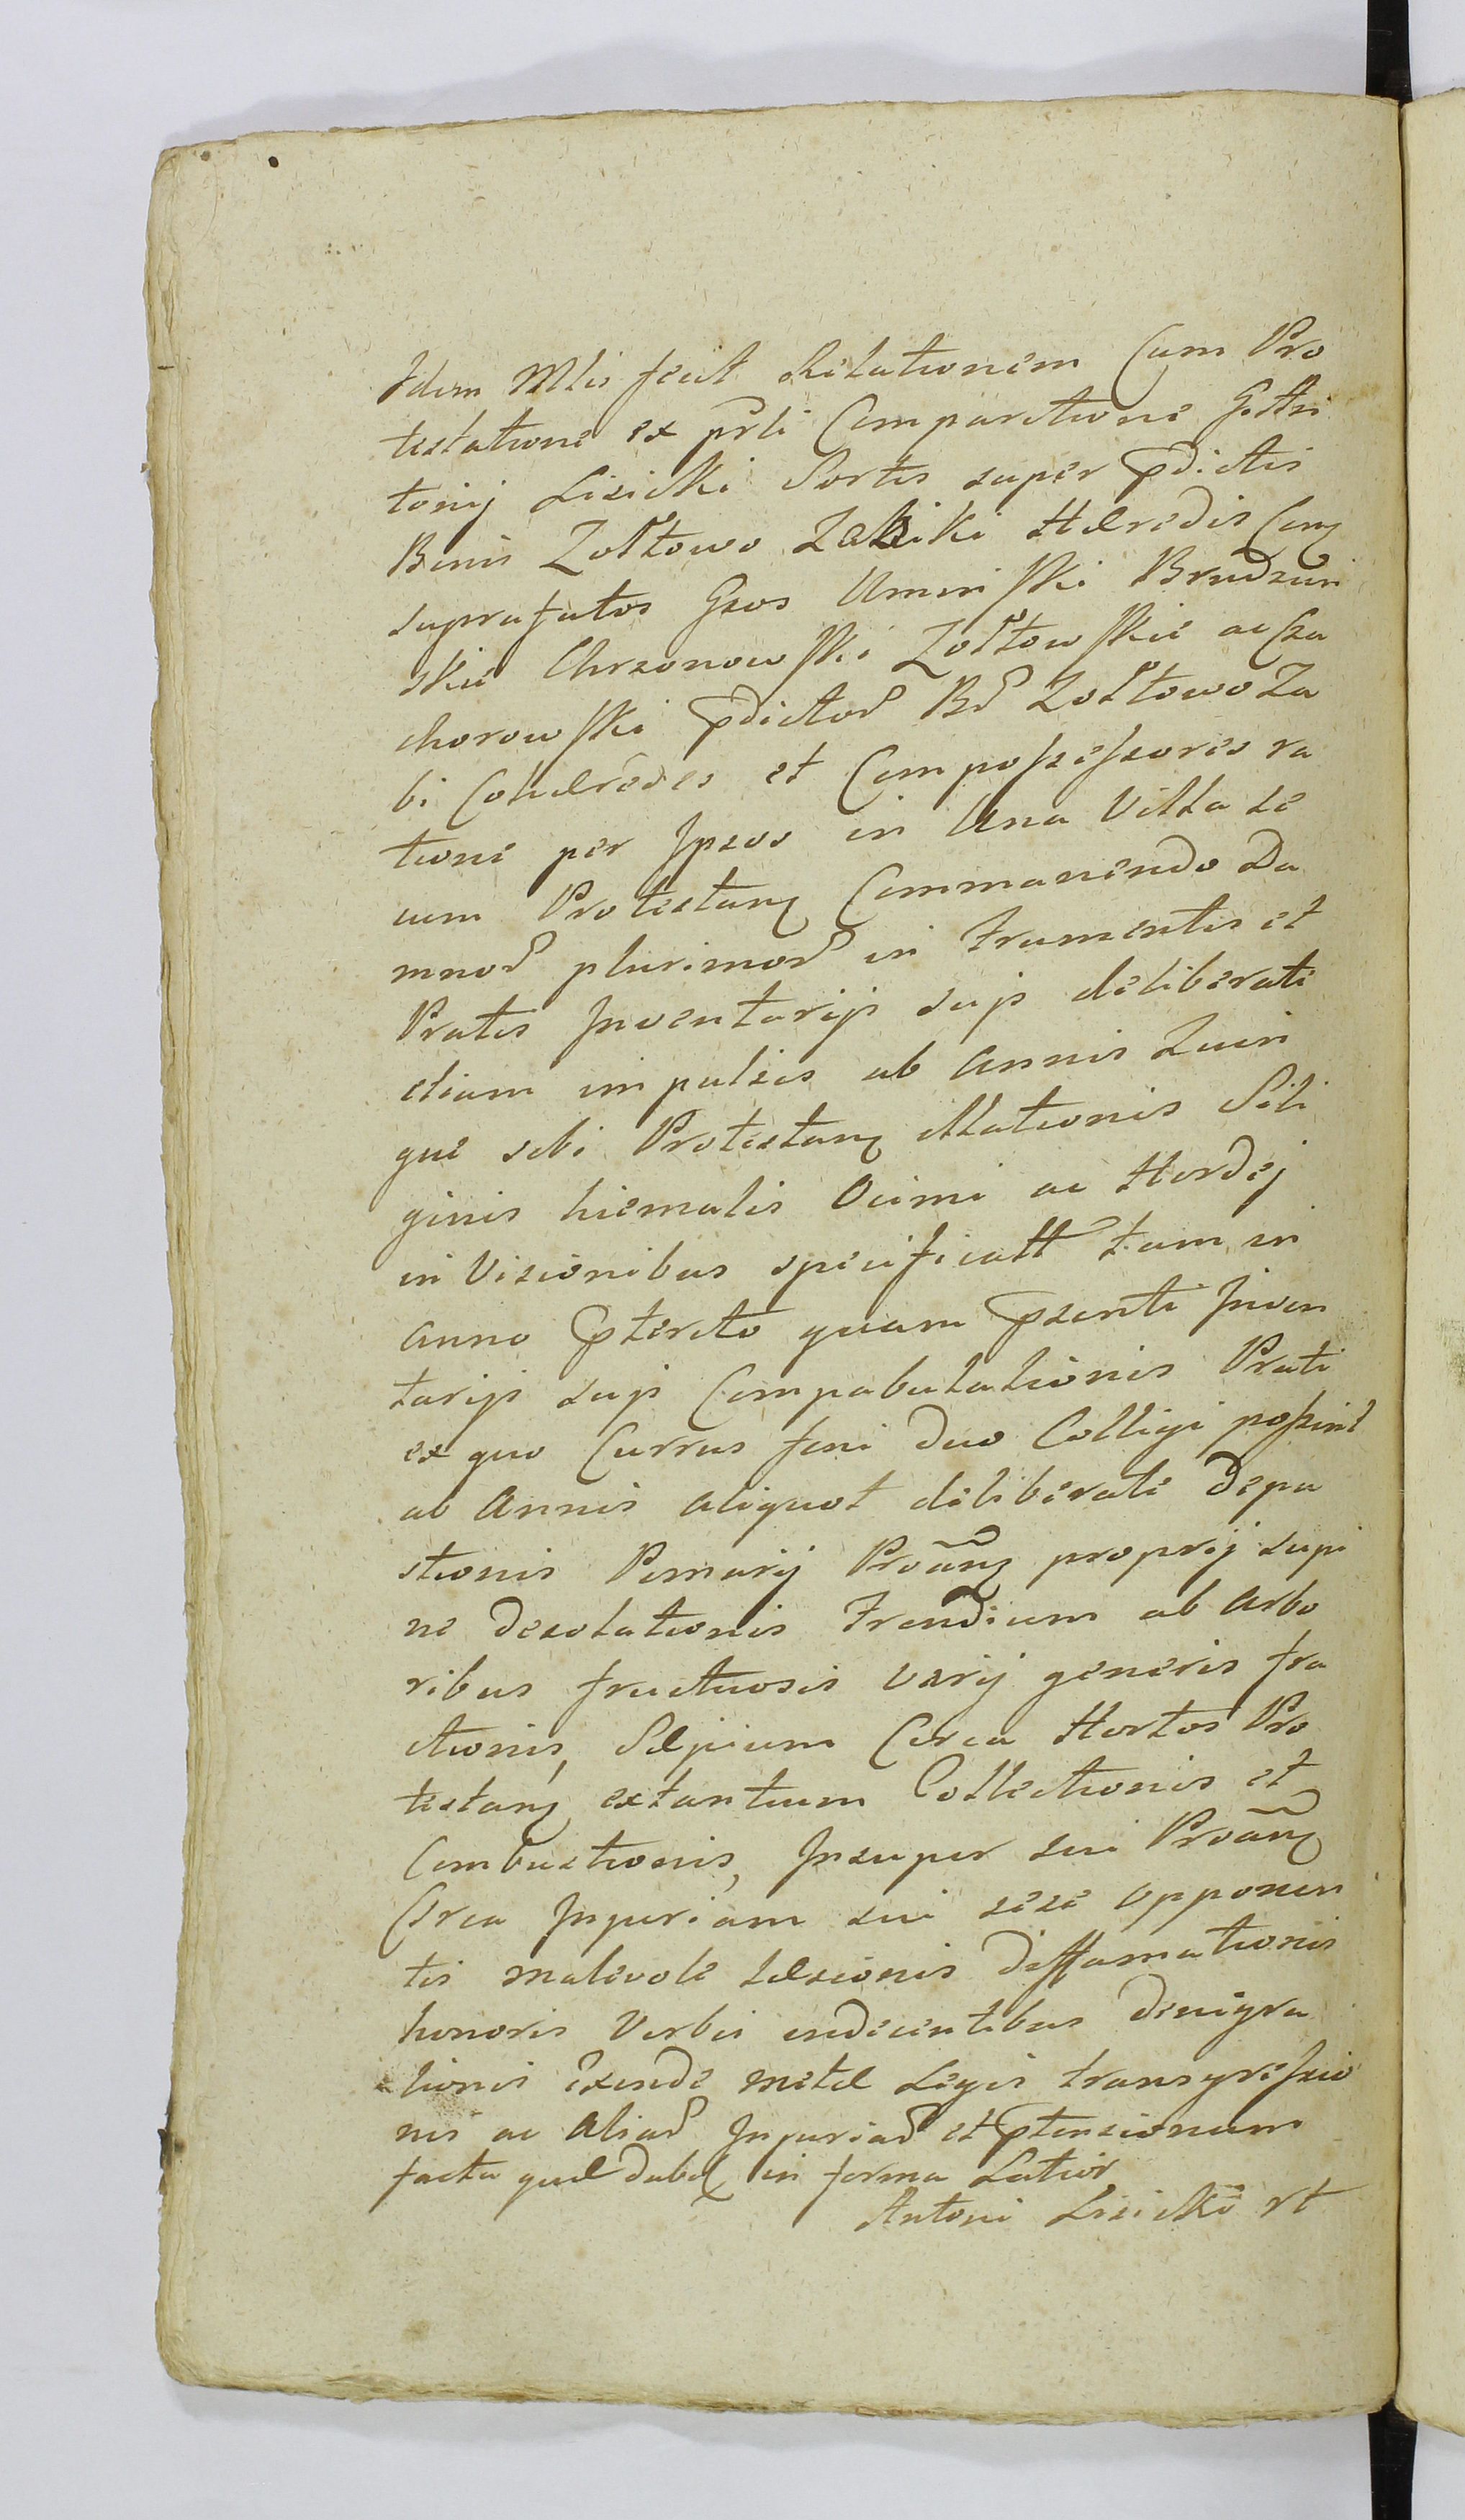 Idem Mlis fecit Relationem Cum Pro
testatione ex prli Comparitione Gsi An
tonij Lisicki Sortis super pdictis
Bonis Zołtowo Zabiki Hæredis Con͡
suprafatos Gsos Uminski Brudzin
skie Chrzonowski Zołtowskie ac Cza
chorowski pdictor Br Zołtowo Za
bi Cohæredes et Compossessores ra
tione per Ipsos in Una Villa se
cum Protestan Commanendo Da
mnor plurimor in Frumentis et
Pratis Inventarijs sujs deliberate
etiam impulsis ab Annis Quin
que sibi Protestan illationis Sili
ginis hiemalis Ocimi ac Hordej
in Visionibus specificatt tam in
anno pterito quam psenti Inven
tarijs sujs Compabulationis Prati
ex quo Currus feni duo Colligi possint
ab Annis aliquot deliberate Depa
stionis Pomarij Proãn proprij supi
ne Desolationis Frondium ab Arbo
ribus fructuosis varij generis fra
ctionis, Sæpium Circa Hortos Pro
testan extantium Collectionis et
Combustionis, Insuper sui Proãn
Circa Injuriam sui sese opponen
tis malevole læsionis Diffamationis
honoris Verbis indecentibus Denigra
tionis Exinde metæ Legis transgressio
nis ac Aliar Injuriar et ptensionum
facta quæ dab in forma Latior
Antoni Lisicki rt